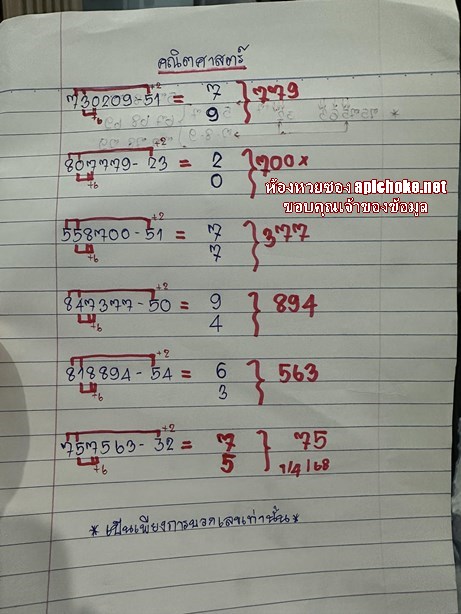 คณิตศาสตร์
+2
730209-51 = 7 } 779
+6 9
+2
807779-23 = 2 } 700×
+6 0
ห้องหวยซอง apichoke.net
ขอบคุณเจ้าของข้อมูล
+2
558700-51 = 7 } 377
+6 7
+2
847377-50 = 9 } 894
+6 4
+2
818894-54 = 6 } 563
+6 3
+2
757563-32 = 7 } 75
+6 5 1/4/68
*เป็นเพียงการบวกเลขเท่านั้น*